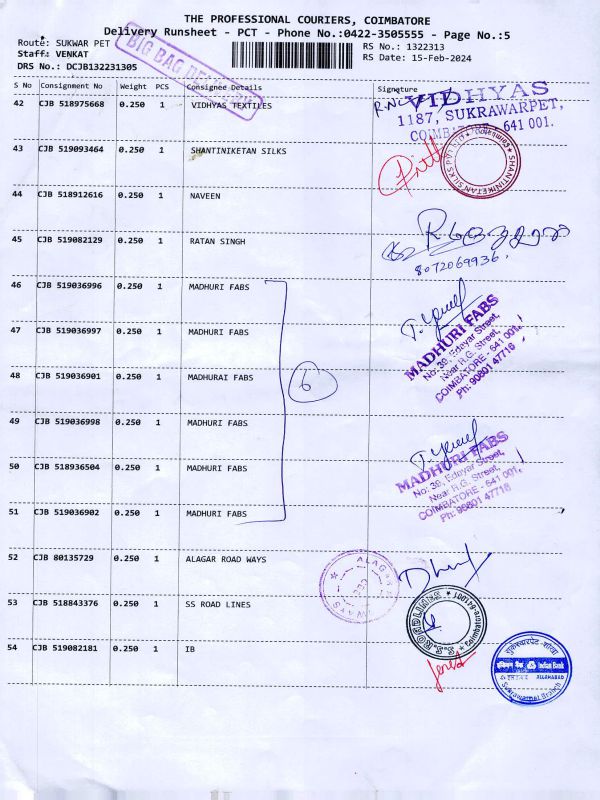 THE PROFESSIONAL COURIERS, COIMBATORE
Delivery Runsheet - PCT - Phone No.:0422-3505555 - Page No.:5
Route: SUKWAR PET
RS No.: 1322313
Staff: VENKAT
RS Date: 15-Feb-2024
DRS No.: DCJB132231305
BIG BAG
S No Consignment No Weight PCS Consignee Details Signature
42 CJB 518975668 0.250 1 VIDHYAS TEXTILES
VIDHYAS
1187, SUKRAWARPET,
COIMBATORE - 641 001.
43 CJB 519093464 0.250 1 SHANTINIKETAN SILKS
SHANTINIKETAN SILKS PVT
44 CJB 518912616 0.250 1 NAVEEN
45 CJB 519082129 0.250 1 RATAN SINGH
8072069936.
46 CJB 519036996 0.250 1 MADHURI FABS
MADHURI FABS
No: 39, Edayar Street,
Near R.G. Street,
COIMBATORE - 641 001.
Ph: 90801 47716
47 CJB 519036997 0.250 1 MADHURI FABS
48 CJB 519036901 0.250 1 MADHURAI FABS
6
49 CJB 519036998 0.250 1 MADHURI FABS
MADHURI FABS
No: 39, Edayar Street,
Near R.G. Street,
COIMBATORE - 641 001.
Ph: 90801 47716
50 CJB 518936504 0.250 1 MADHURI FABS
51 CJB 519036902 0.250 1 MADHURI FABS
52 CJB 80135729 0.250 1 ALAGAR ROAD WAYS
53 CJB 518843376 0.250 1 SS ROAD LINES
S.S. ROADLINES
Coimbatore-641001
54 CJB 519082181 0.250 1 IB
इंडियन बैंक Indian Bank
ALLAHABAD
Sukrawarpet Branch